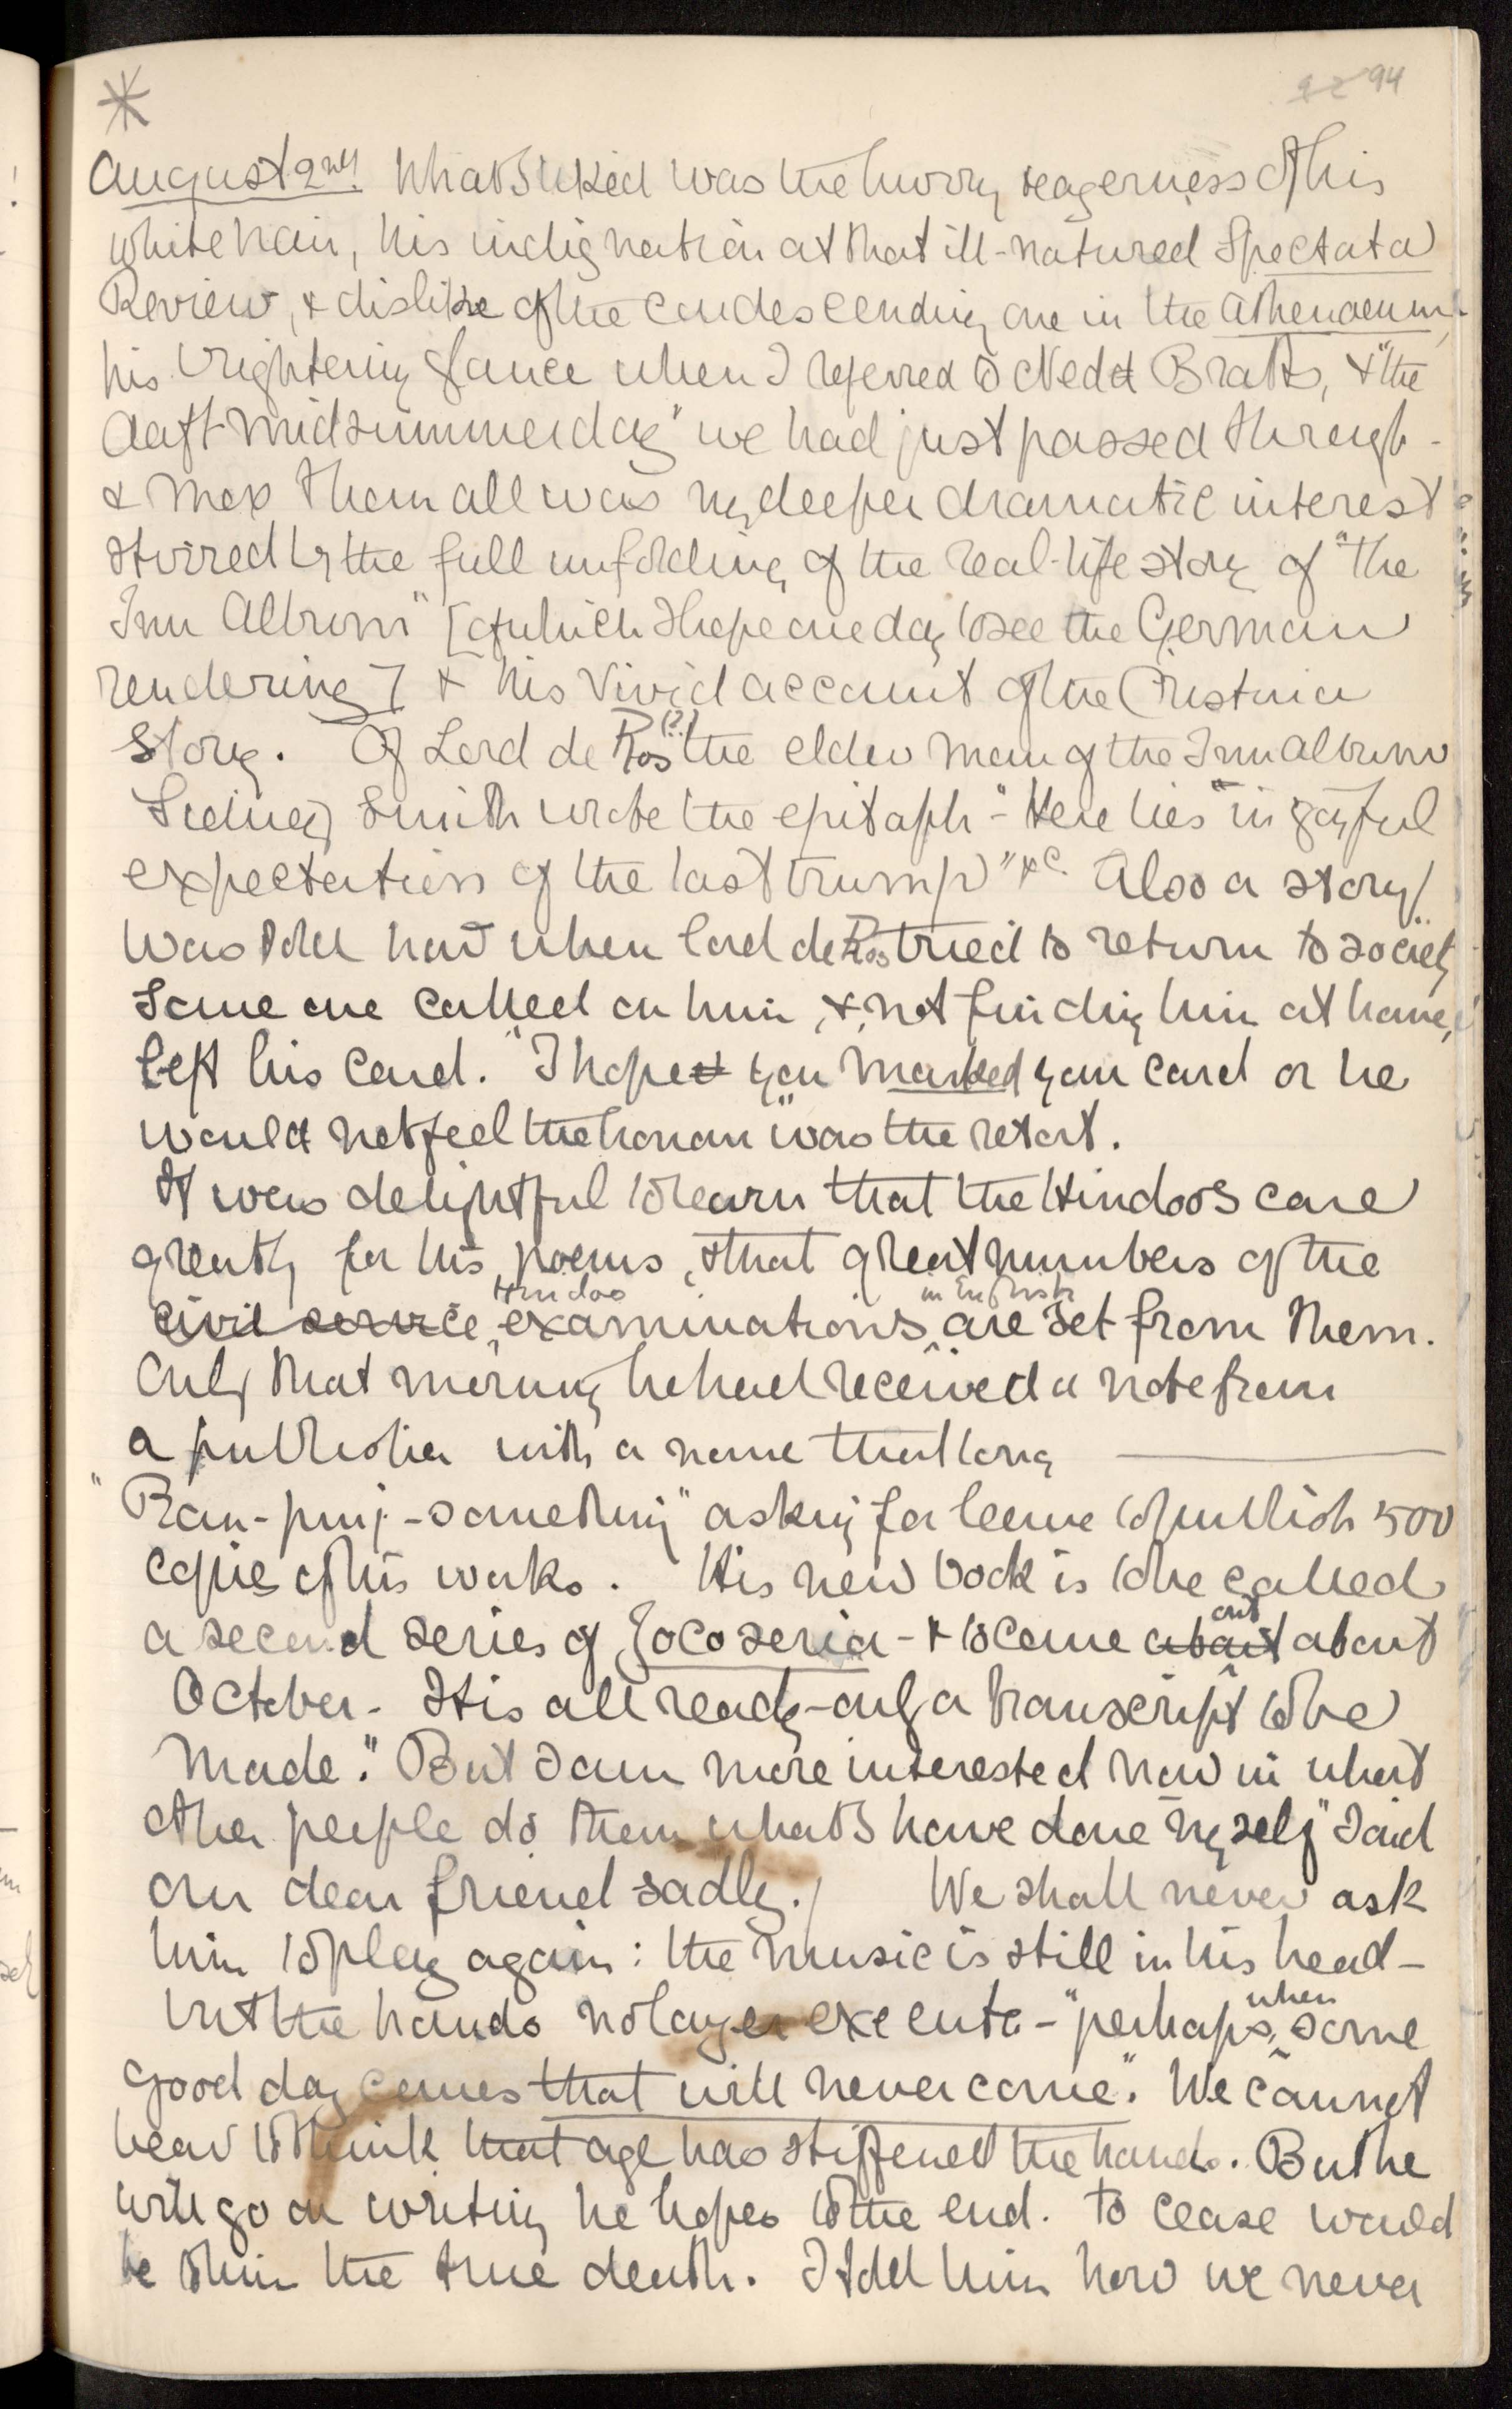 94
August 2nd. What I liked was the hurry & eagerness of his
white hair, his indignation at that ill-natured Spectator
Review, & dislike of the condescending one in the Athenaeum,
his brightening glance when I referred to Ned Bratts, & "the
daft midsummer day" we had just passed through -
& more than all was my deeper dramatic interest
stirred by the full unfolding of the real-life story of "the
Inn Album" [of which I hope one day to see the German
rendering] & his vivid account of the Cristina
story. Of Lord de Ros (?) the elder man of the Inn Album
Sidney Smith wrote the epitaph - "Here lies "in joyful
expectation of the last trump" &c. Also a story
was told how when Lord de Ros tried to return to society
some one called on him, &, not finding him at home,
left his card. "I hope you marked your card or he
would not feel the honour" was the retort.
It was delightful to learn that the Hindoos care
greatly for his poems, & that great numbers of the
civil service Hindoo examinations in English are set from them.
Only that morning he had received a note from
a publisher with a name that long
"Ram-punj-something" asking for leave to publish 500
copies of his works. His new book is to be called
a second series of Jocoseria - & to come about out about
October. It is all ready - only a transcript to be
made. "But I am more interested now in what
other people do than what I have done myself" said
our dear friend sadly. / We shall never ask
him to play again: the music is still in his head -
but the hands no longer execute - "perhaps, when some
good day comes that will never come". We cannot
bear to think that age has stiffened the hands. But he
will go on writing he hopes to the end. To cease would
be to him the true death. I told him how we never